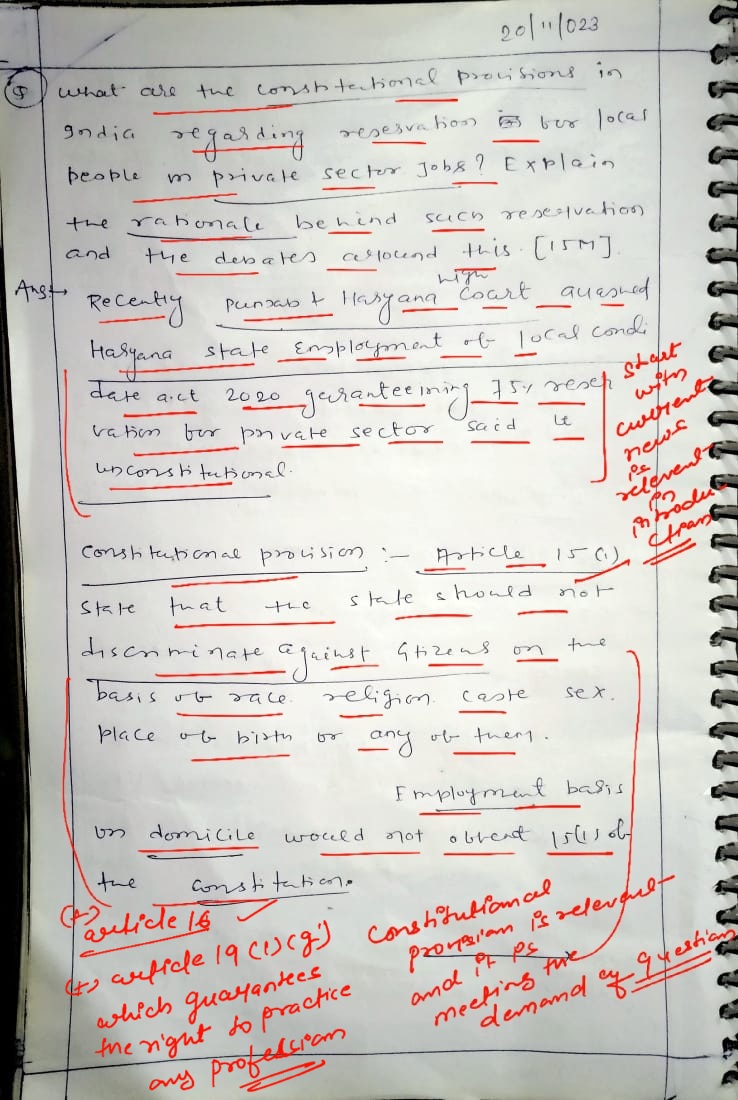 20/11/023
Q What are the constitutional provisions in
India regarding reservation for local
people in private sector Jobs? Explain
the rationale behind such reservation
and the debates around this. [15M].
Ans→ Recently Punjab & Haryana high Court quashed
Haryana state Employment of local condi
date act 2020 guranteeining 75% reser
vation for private sector said it
unconstitutional.
start
with
current
news
is
relevent
in
introdu-
ction
Constitutional provision :- Article 15(1)
State that the state should not
discriminate against citizens on the
basis of race. religion. caste sex.
place of birth or any of them.
Employment basis
on domicile would not 15(1) of
the constitution.
(+) article 16
(+) article 19(1)(g)
which guarantees
the right to practice
any profession
Constitutional
provision is relevant
and it is
meeting the
demand of question